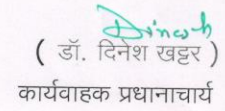 Dinesh
( डॉ. दिनेश खट्टर )
कार्यवाहक प्रधानाचार्य